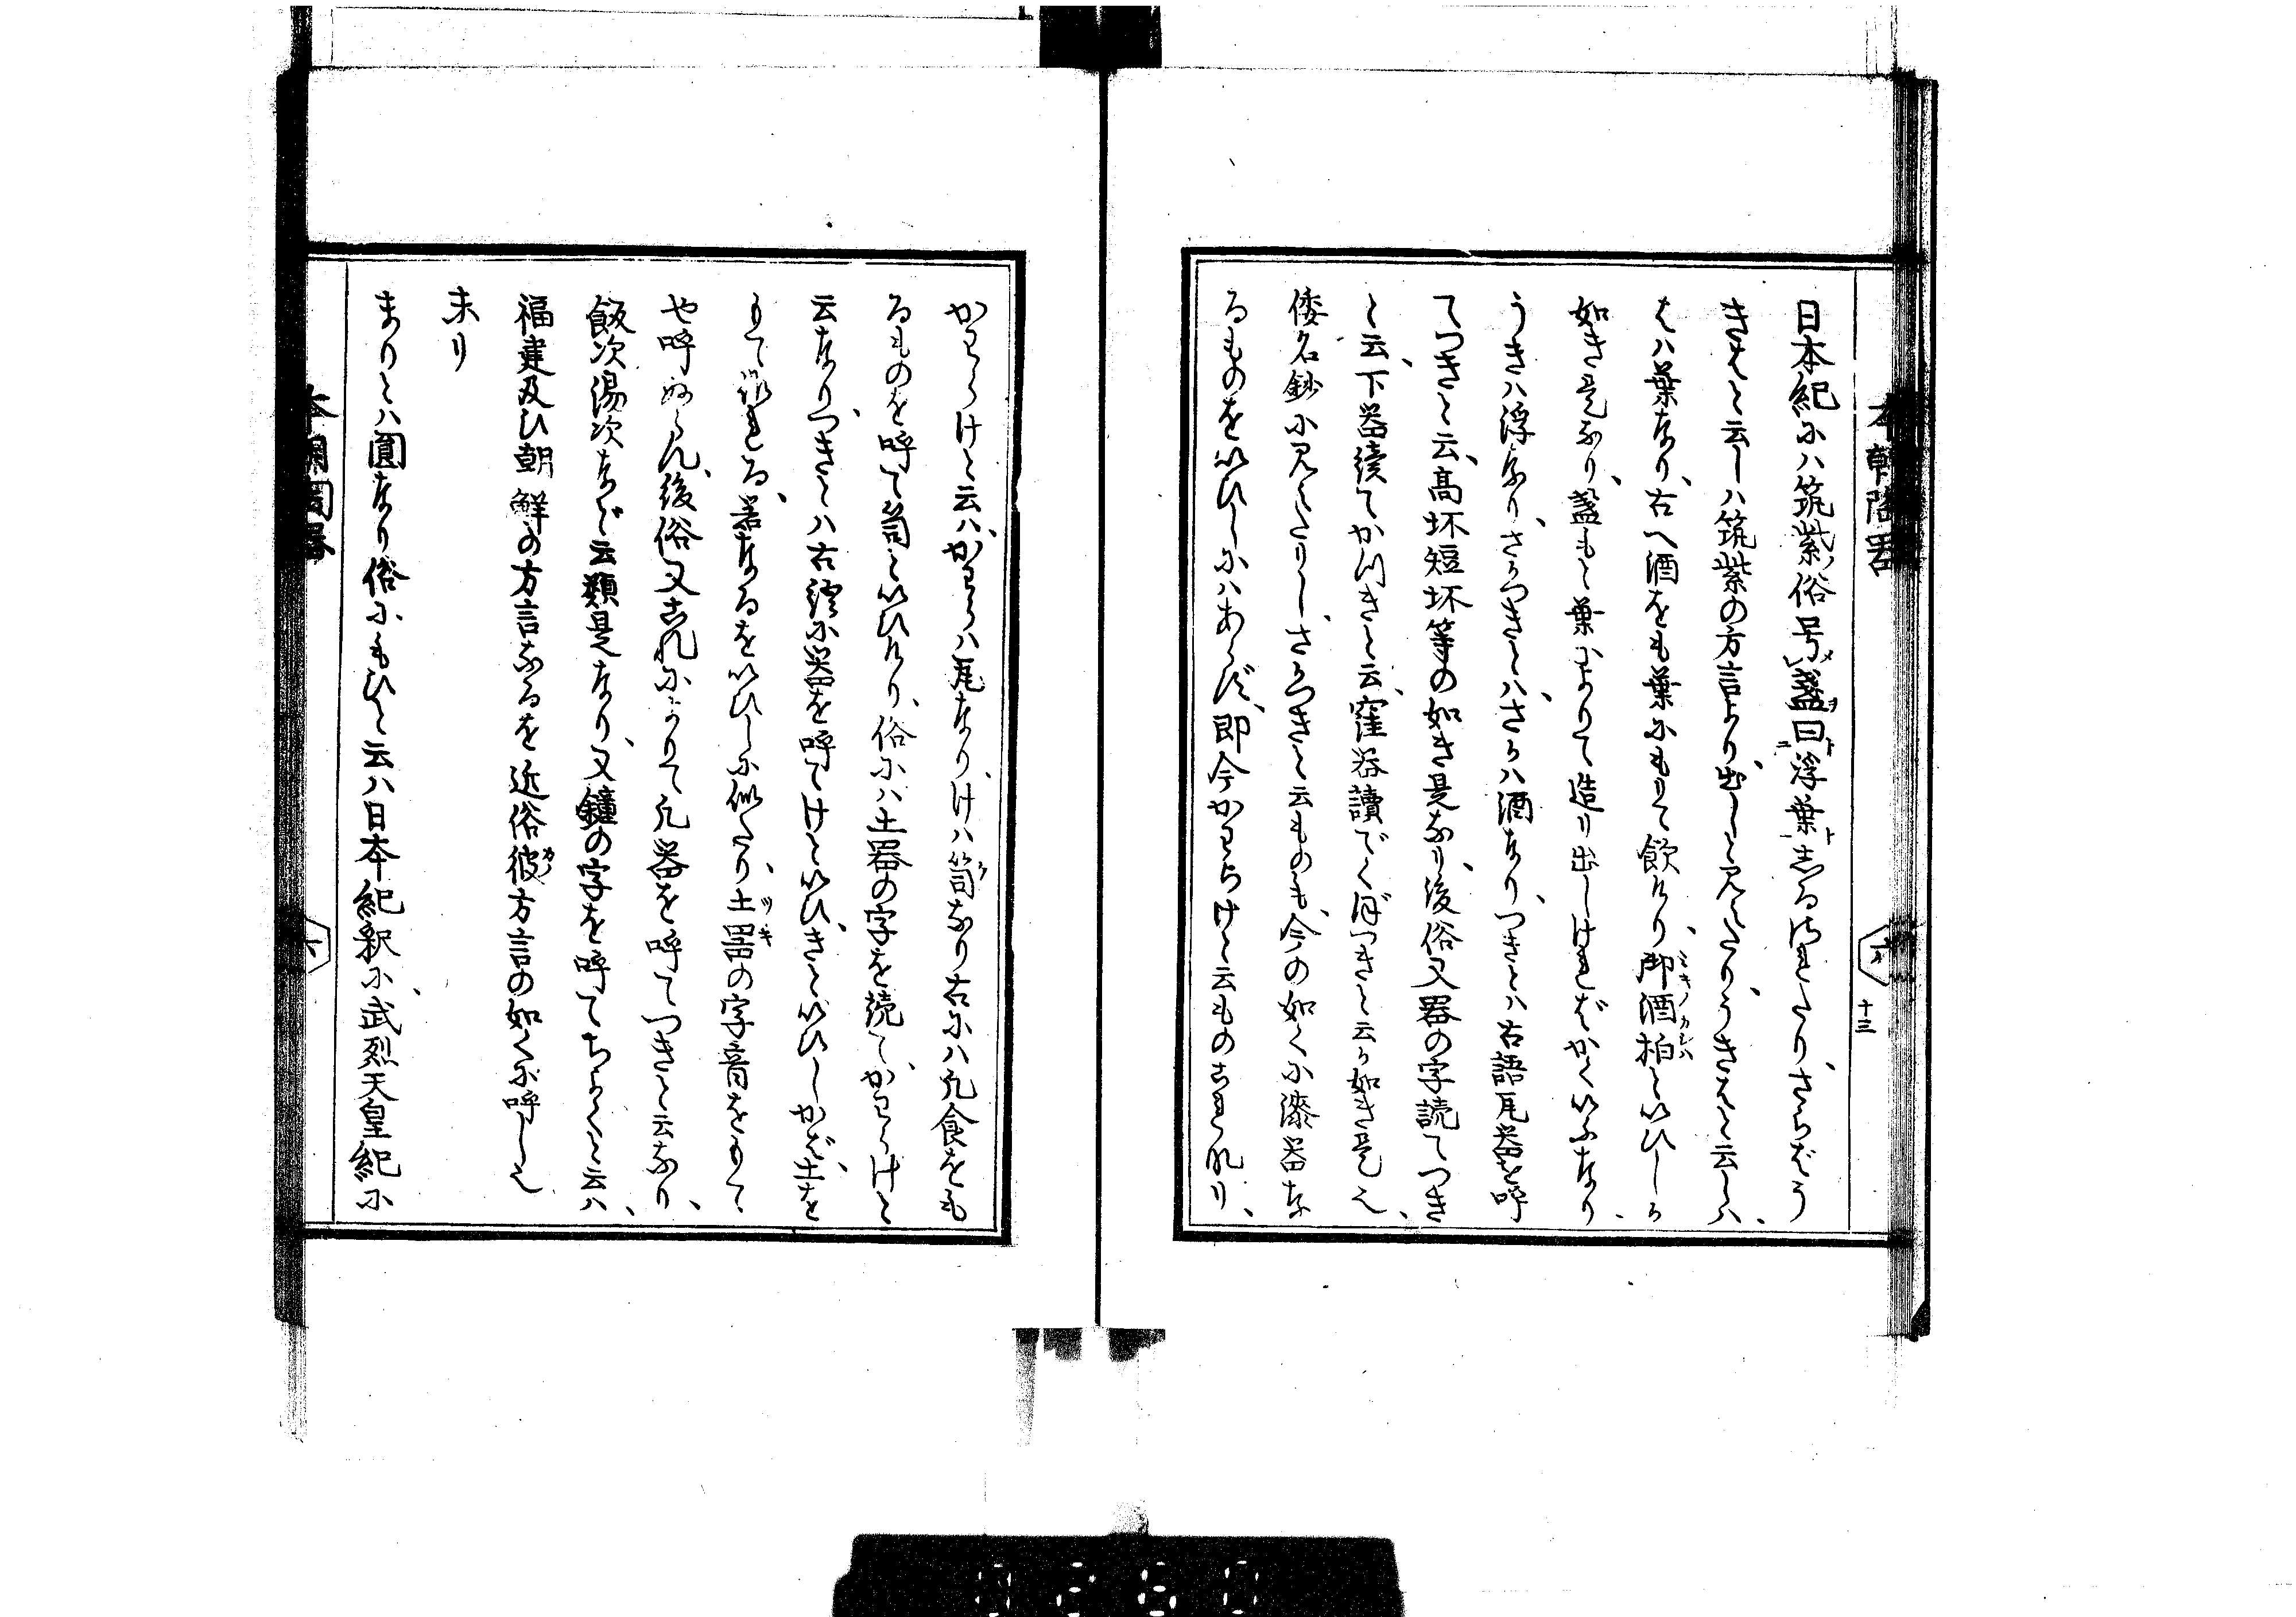 本朝陶器
六
十三
日本紀小ハ筑紫ノ俗号メ盞ヲ曰ニ浮葉ト一志るされたり、さらばう
きはと云しハ筑紫の方言より出しと見へたり、うきはと云しハ、
はハ葉なり、古へ酒をも葉にもりて飲けり、御酒柏ミキノカシハといひしか
如き是なり、盞もと葉によりて造り出しけれバかくいふなり、
うきハ浮なり、さかつきとハ、さかハ酒なり、つきとハ古語瓦器を呼
てつきと云、高坏短坏等の如き是なり、後俗又器の字読てつき
と云、下器續てかハつきと云、窪器讀でくぼつきと云か如き是也、
倭名鈔に見へたりし、さかつきと云ものも、今の如くに漆器な
るものをいひしにハあらず、即今かわらけと云ものこれなり、
かわらけと云ハ、かわらハ瓦なり、けハ笥ケなり古にハ凡食をも
るものを呼て笥といひけり、俗にハ土器の字を読て、かわらけと
云なり、つきとハ古語に器を呼てけといひ、きといひしかば、土を
もて作れる、器なるをいひしに似たり、土器ツキの字音をもて
や呼ぬらん、後俗又これによりて凡器を呼てつきと云なり、
飯次湯次など云類是なり、又鐘の字を呼てちよくと云ハ、
福建及ひ朝鮮の方言なるを近俗彼カノ方言の如くに呼し也
末り
まりとハ圓なり俗にもひと云ハ日本紀釈に、武烈天皇紀に
本朝陶器
六